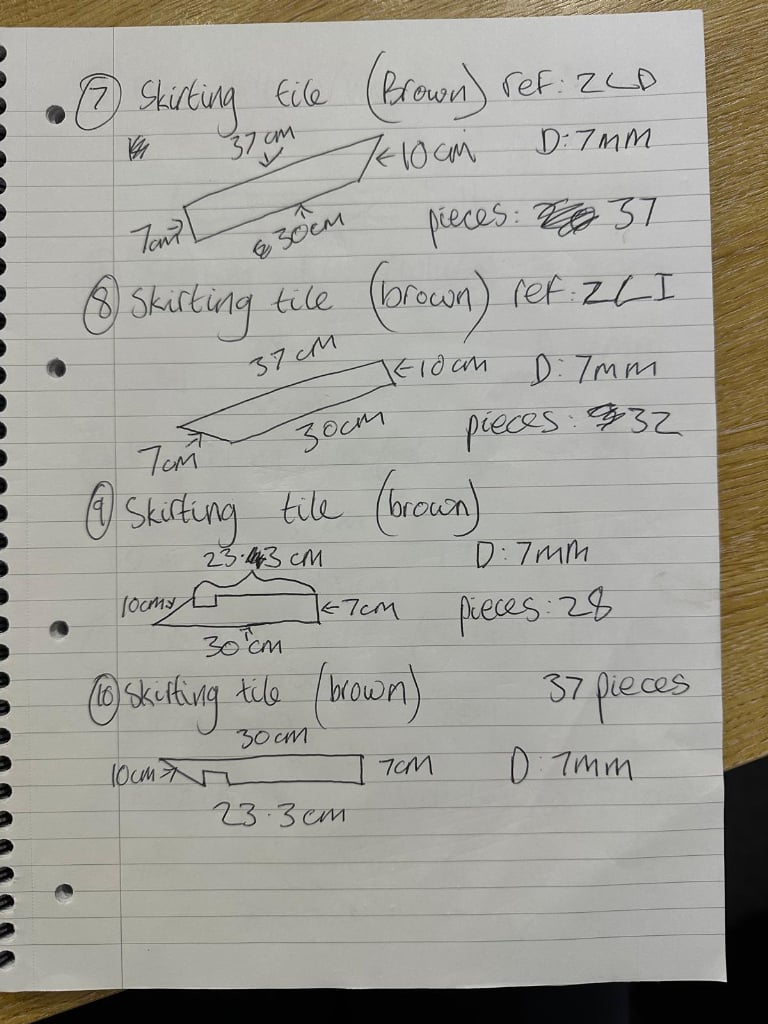 7 Skirting tile (Brown) ref: ZLD
37cm
←10cm D: 7mm
7cm
30cm
pieces: 37
8 Skirting tile (brown) ref: ZLI
37cm
←10cm D: 7mm
30cm
pieces: 32
7cm
9 Skirting tile (brown)
23.3cm D: 7mm
10cm
←7cm pieces: 28
30cm
10 Skirting tile (brown) 37 pieces
30cm
10cm 7cm D: 7mm
23.3cm